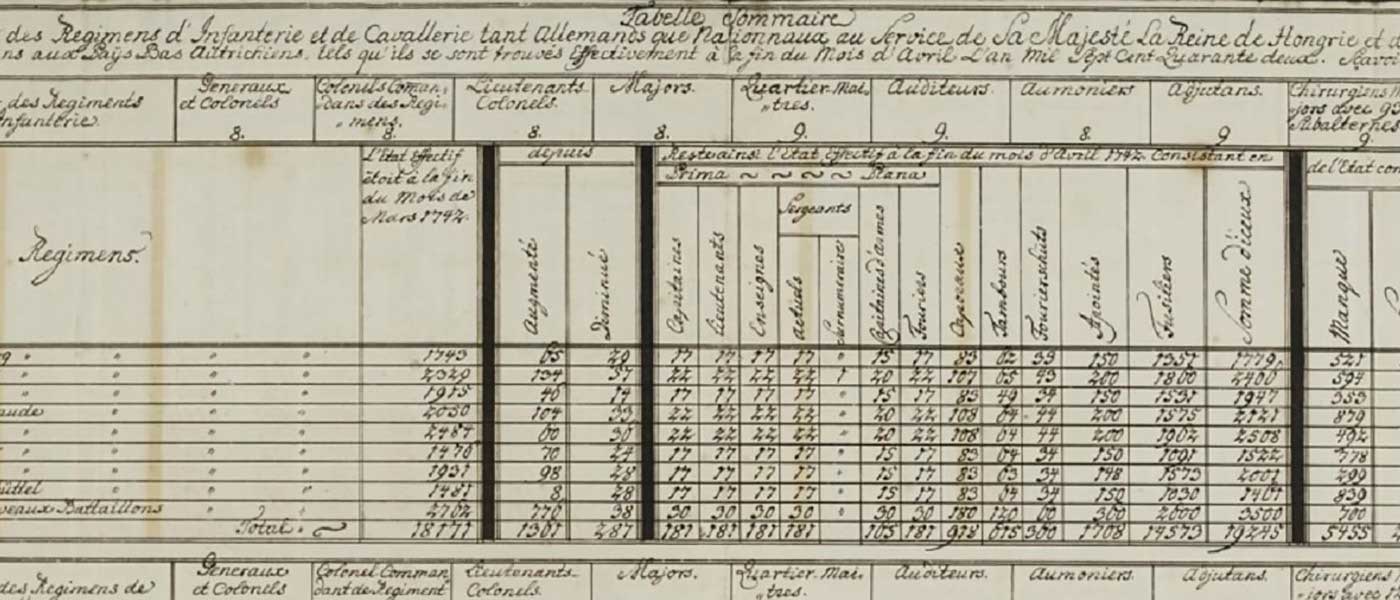 Tabelle Sommaire
des Regimens d'Infanterie et de Cavallerie tant Allemands que Nationnaux au Service de Sa Majesté La Reine de Hongrie et d
ns aux Païs Bas Autrichiens. tels qu'ils se sont trouvés Effectivement à la fin du Mois d'Avril L'an Mil Sept Cent Quarante deux. Scavoi
des Regiments Infanterie. Generaux et Colonels 8. Colonels Coman, dans des Regi, mens. 8. Lieutenants Colonels. 8. Majors. 8. Quartier Mai, tres. 9. Auditeurs. 9. Aumoniers 8. Adjutans. 9 Chirurgiens M jors avec 93 Subalternes 9.
Regimens.
L'Etat Effectif étoit à la fin du Mois de Mars 1742.
depuis
Augmenté Diminué
Restrains l'Etat Effectif à la fin du mois d'Avril 1742. Consistant en
Prima Plana
Sergeants
Capitaines Lieutenants Enseignes Actuels Surnumeraire Capitaines d'armes Fouriers Caporaux Tambours Fourierschüts Apointés Fusiliers Somme d'iceux
de l'Etat con
Manque
g " " " " 1743 65 29 17 17 17 17 " 15 17 83 62 33 150 1351 1779 521
" " " " 2329 134 57 22 22 22 22 1 20 22 107 65 43 200 1800 2400 594
" " " " 1915 46 14 17 17 17 17 " 15 17 83 49 34 150 1531 1947 353
aude " " " 2050 104 33 22 22 22 22 " 20 22 108 64 44 200 1575 2121 879
" " " " 2484 60 36 22 22 22 22 " 20 22 108 64 44 200 1962 2508 492
" " " " 1476 70 24 17 17 17 17 " 15 17 83 64 34 150 1091 1522 778
" " " " 1931 98 28 17 17 17 17 " 15 17 83 63 34 148 1573 2001 299
üttel " " " 1481 8 28 17 17 17 17 " 15 17 83 64 34 150 1030 1461 839
veaux Battaillons " " " 2762 776 38 30 30 30 30 " 30 30 180 120 60 300 2600 3500 700
Total. 18171 1361 287 181 181 181 181 165 181 918 615 360 1708 14573 19245 5455
des Regimens de Generaux et Colonels Colonel Comman dant de Regiment Lieutenants Colonels. Majors. Quartier Mai, tres. Auditeurs. Aumoniers. Adjutans. Chirurgiens jors avec